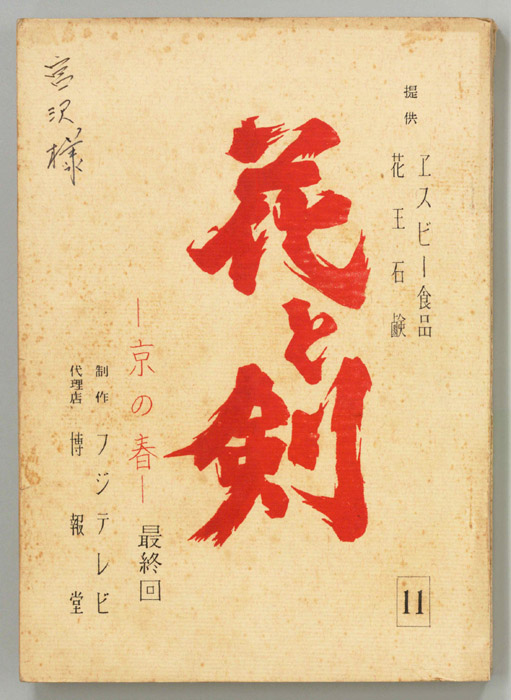 提供
ヱスビー食品
花王石鹸
花と剣
―京の春―
最終回
制作 フジテレビ
代理店 博報堂
宮沢様
11